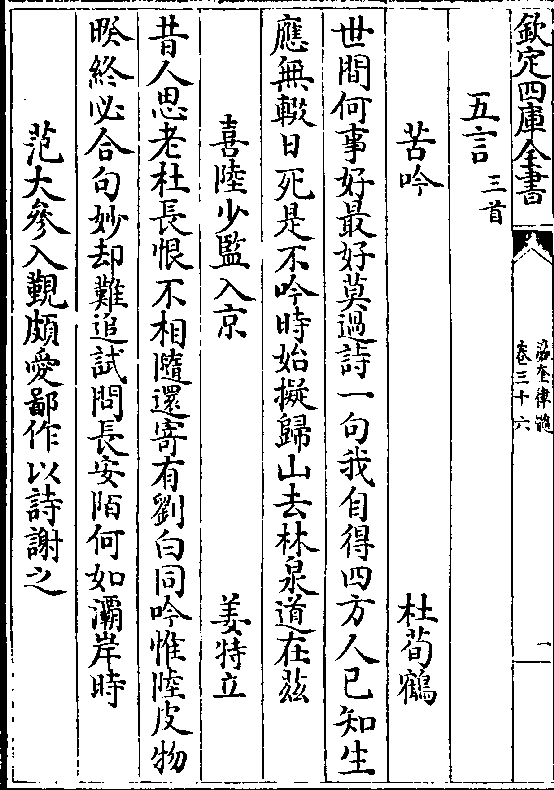 欽定四庫全書
瀛奎律髓
卷三十六
一
五言三首
苦吟 杜荀鶴
世間何事好最好莫過詩一句我自得四方人已知生
應無輟日死是不吟時始擬歸山去林泉道在茲
喜陸少監入京 姜特立
昔人思老杜長恨不相隨還寄有劉白同吟惟陸皮物
暌終必合句妙却難追試問長安陌何如灞岸時
范大參入覲頗愛鄙作以詩謝之